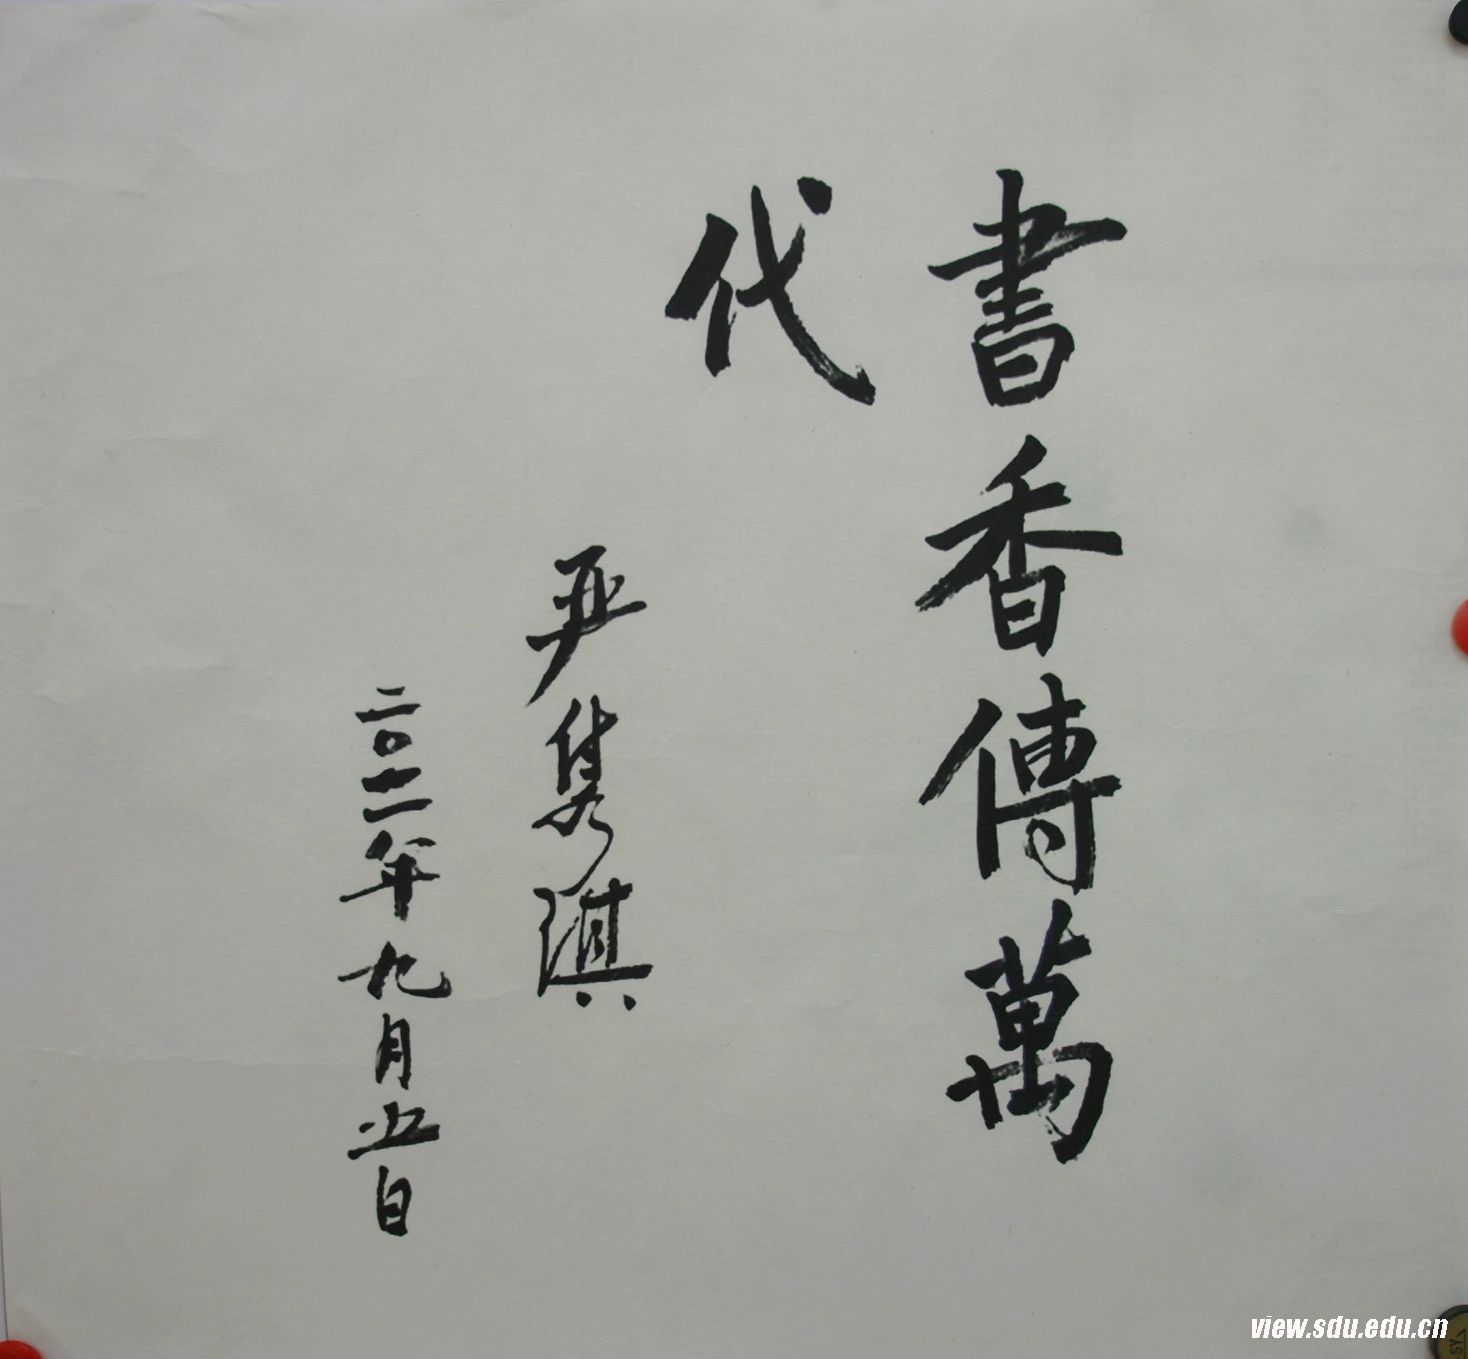 書香傳萬
代
严隽琪
二〇一二年九月五日
view.sdu.edu.cn